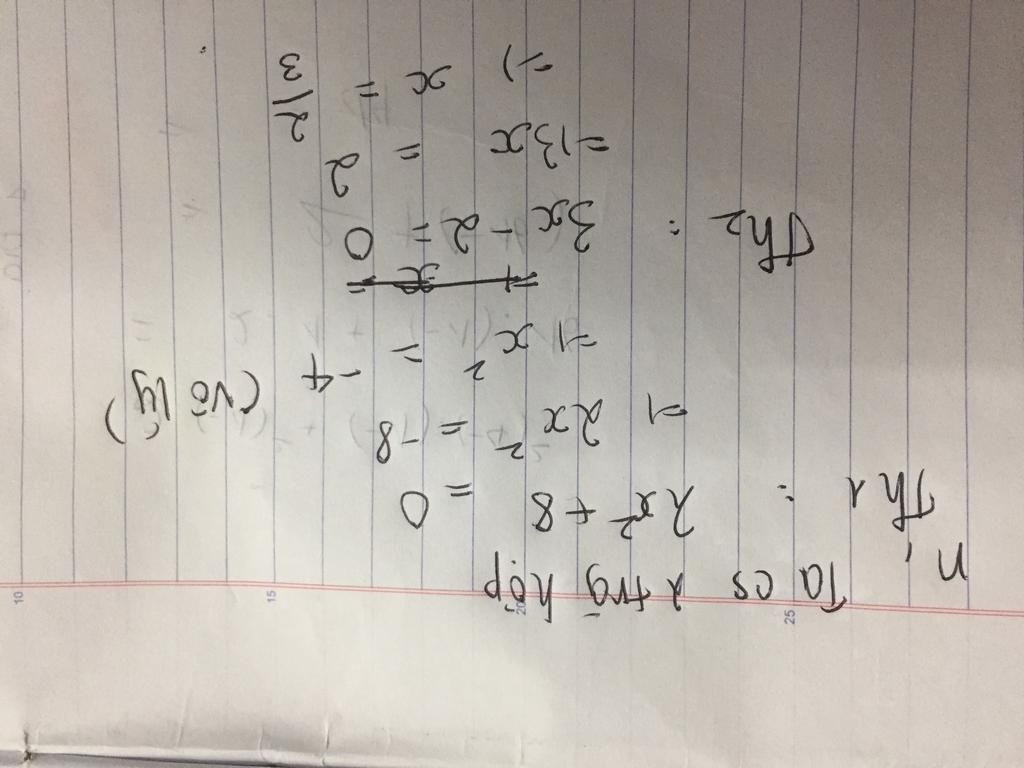 n, Ta có 2 trg hợp
Th1 : 2x² + 8 = 0
=) 2x² = -8
=) x² = -4 (vô lý)
=) x =
Th2 : 3x - 2 = 0
=) 3x = 2
=) x = 2/3
25 20 15 10